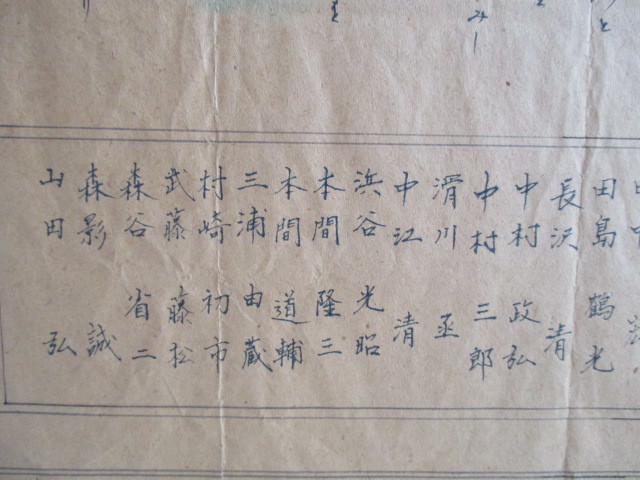 田島 鶴光
長沢 清
中村 政弘
中村 三郎
滑川 丞
中江 清
浜谷 光昭
本間 隆三
本間 道輔
三浦 由蔵
村崎 初市
武藤 藤松
森谷 省二
森影 誠
山田 弘